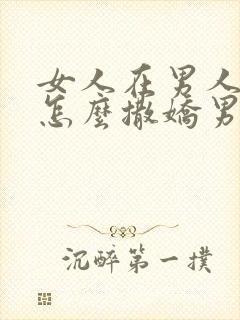 女人在男人
怎麼撒嬌男
沉醉第一撲